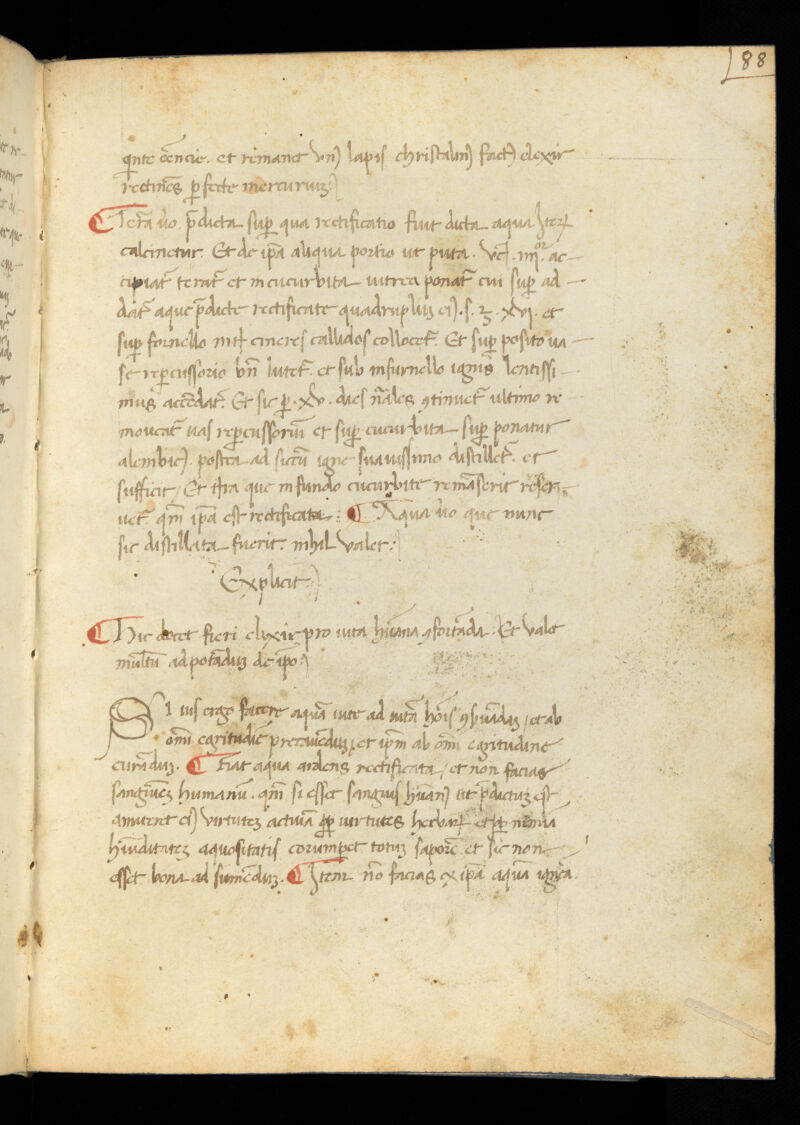 88
qnte eēncie. et remanet vnꝰ lapis christalinꝰ factꝰ elexir
rectinēs ꝑfecte mercurium:
Terā ůo p̄dicta suꝑ qua rectificatio fiut dicta aqua Iteꝝ
calcinetur. Et de ip̄a aliqua portio ut puta. vꝫ. iiijoꝛ ac-
cipiat̄ terat̄ et in cucurbita vitrea ponat̄ cui suꝑ ad-
dat̄ aque p̄dicte rectificate quadruplum eiꝰ .s. ℥. xvj. et
suꝑ fornello int̄ cineres callidos collocet̄. Et suꝑ posito va-
se reꝑcussorio bn̄ lutet̄. et sub infurnello ignis lentissi-
mus accēdat̄. Et sic ꝑ .xv. dies nāles ꝯtinuet̄ ultimo re-
moueat̄ uas reꝑcussoriū et suꝑ cucurbita suꝑ ponatur
alembicꝰ. postea ad siccū igne suauissimo distillet̄. et
sufficit / Et tr̄a que in fundo cucurbite remāserit reser-
uet̄ qm̄ ip̄a est rectificata: Aqua ůo que nunc
sic distillata fuerit. nihil valet:
Explicit
Hic docet fieri elixir pro uita hūana ꝯfortāda. Et vale
multū ad potādum de ip̄o:
SI uis ergo facere aquā uite ad uitā hoīs ꝯseruādam / et ab
omī egritudīe preseruēdum / et ip̄m ab omī egritudine
curādum. Fiat aqua ardens rectificata / et non facias
sanguinem humanū. qm̄ si esset sanguis hūanꝰ ut p̄dictum est
amitteret eiꝰ virtutem actiuā ꝓpter virtutes herbaꝝ et ꝑ nimia
hūiditatem aquositatis corumperet totum saporē et sic non
esset bona ad sumēdum. Item nō facias ex ip̄a aquā igneā.